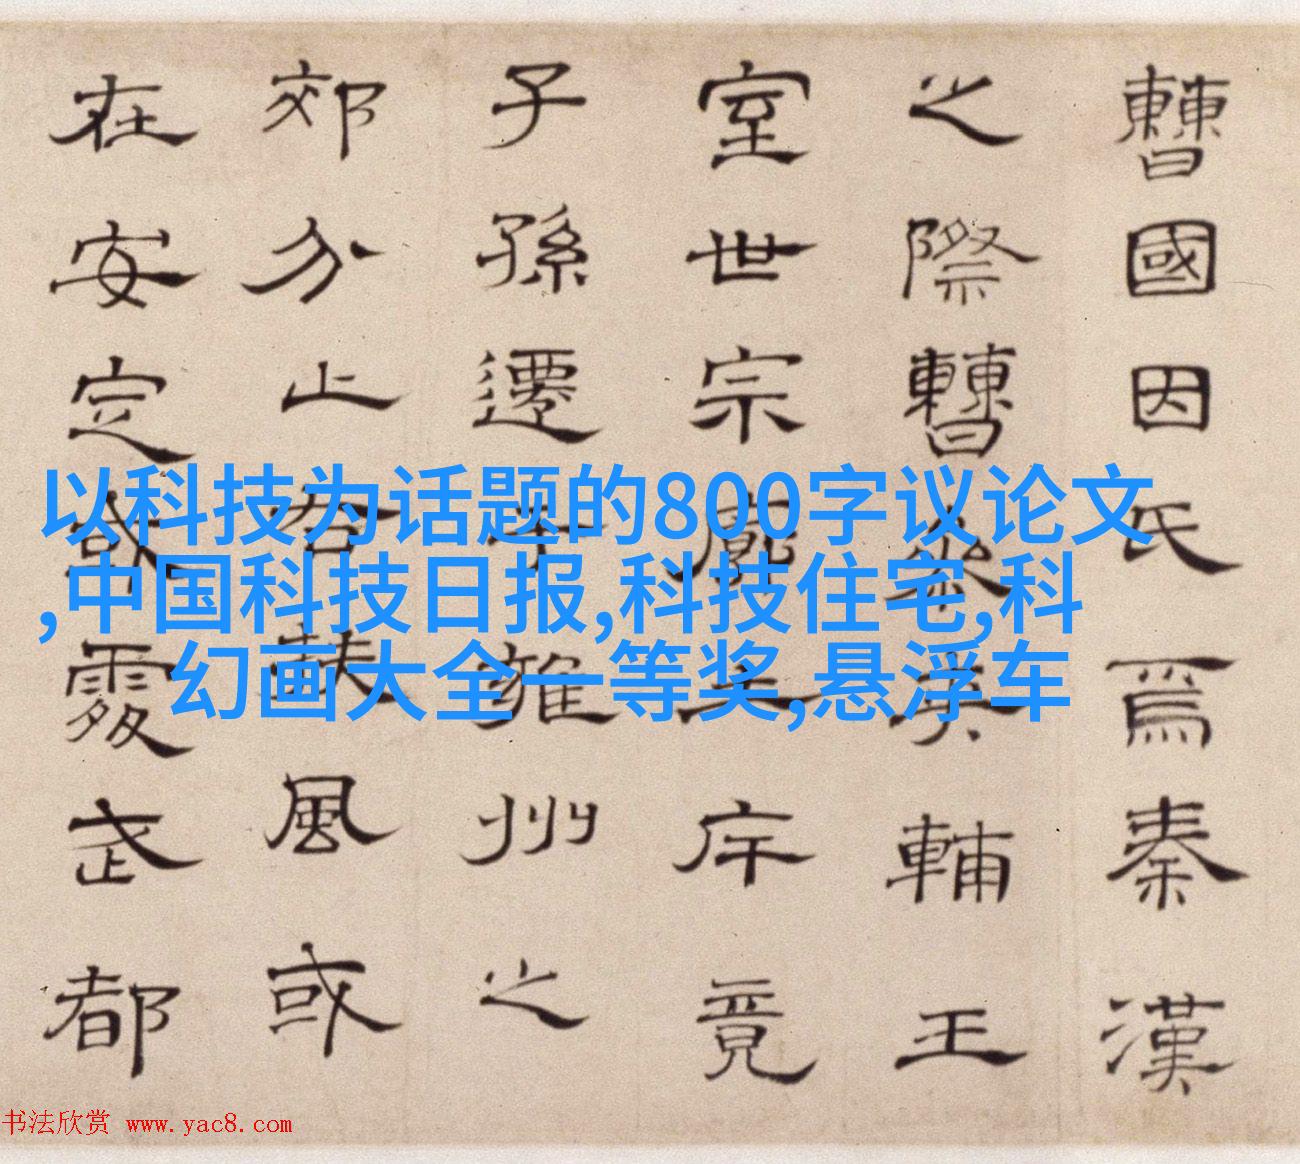 曹國因氏焉秦漢
之際曹參夾輔王
室世宗廓土斥竟
子孫遷于雍州之
郊分止右扶風或
在安定或處武都
以科技为话题的800字议论文
,中国科技日报,科技住宅,科
幻画大全一等奖,悬浮车
书法欣赏 www.yac8.com